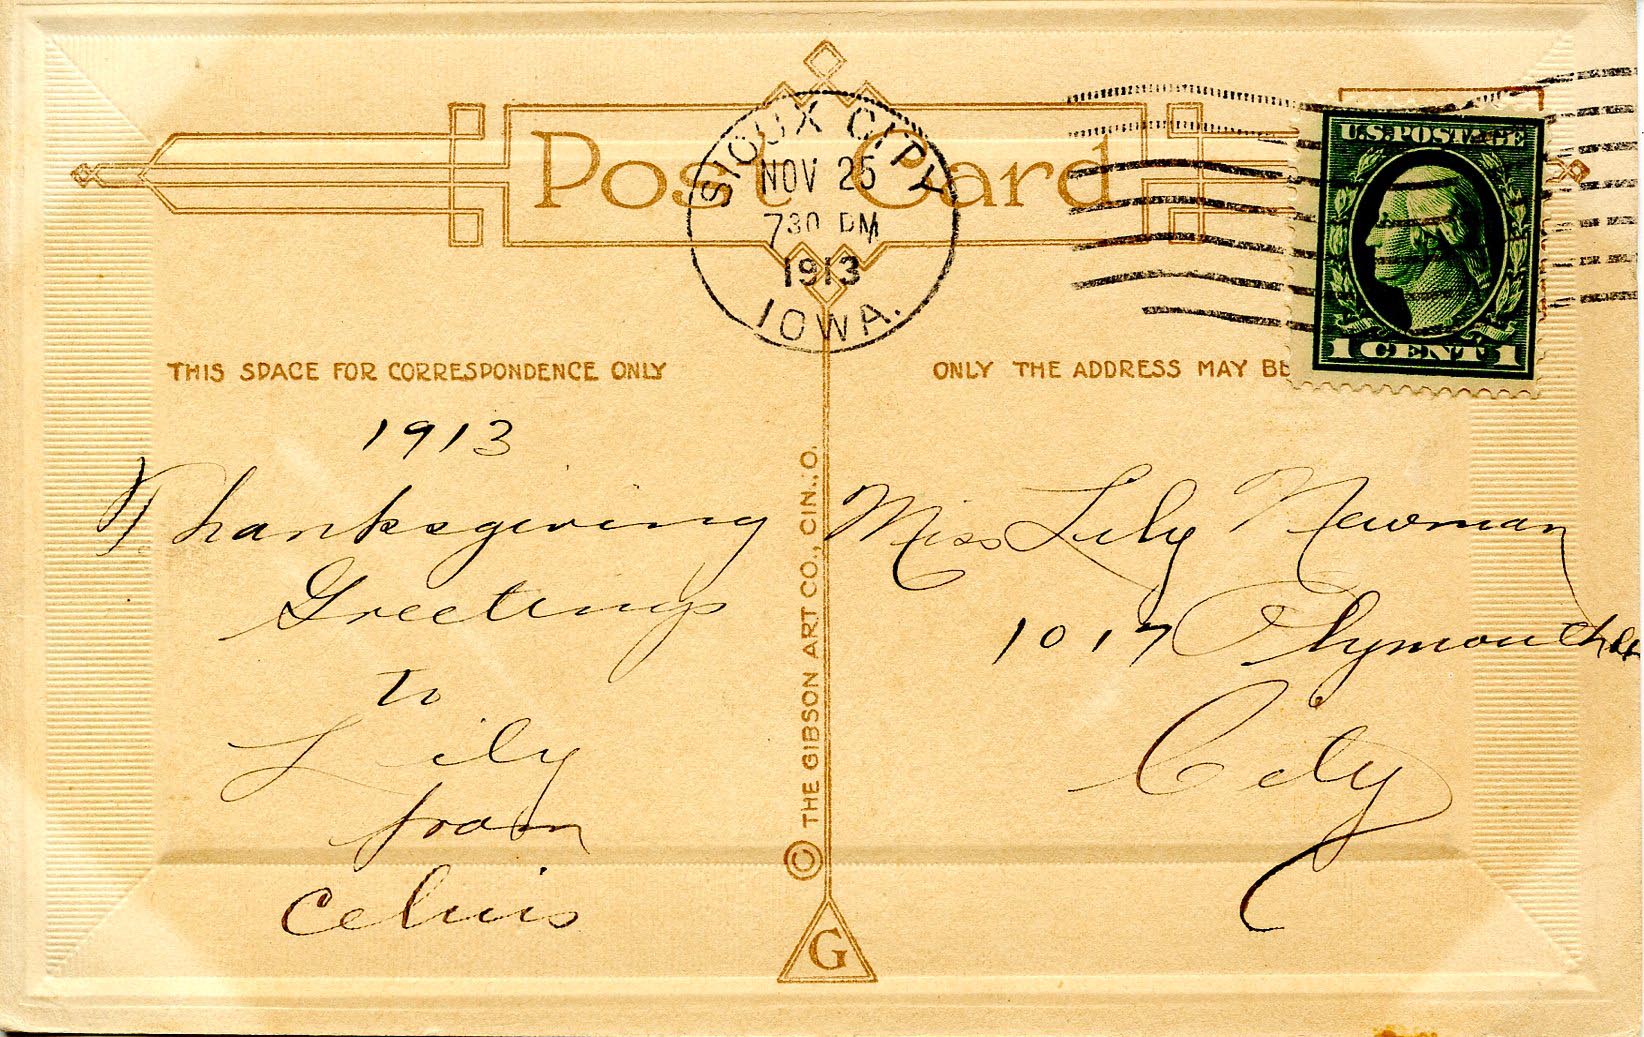 Post Card
SIOUX CITY
NOV 25
730 PM
1913
IOWA.
U.S. POSTAGE
1 CENT 1
THIS SPACE FOR CORRESPONDENCE ONLY
ONLY THE ADDRESS MAY BE
1913
Thanksgiving
Greetings
to
Lily
from
© THE GIBSON ART CO., CIN., O.
G
Miss Lily Newman
1017 Plymouth
City